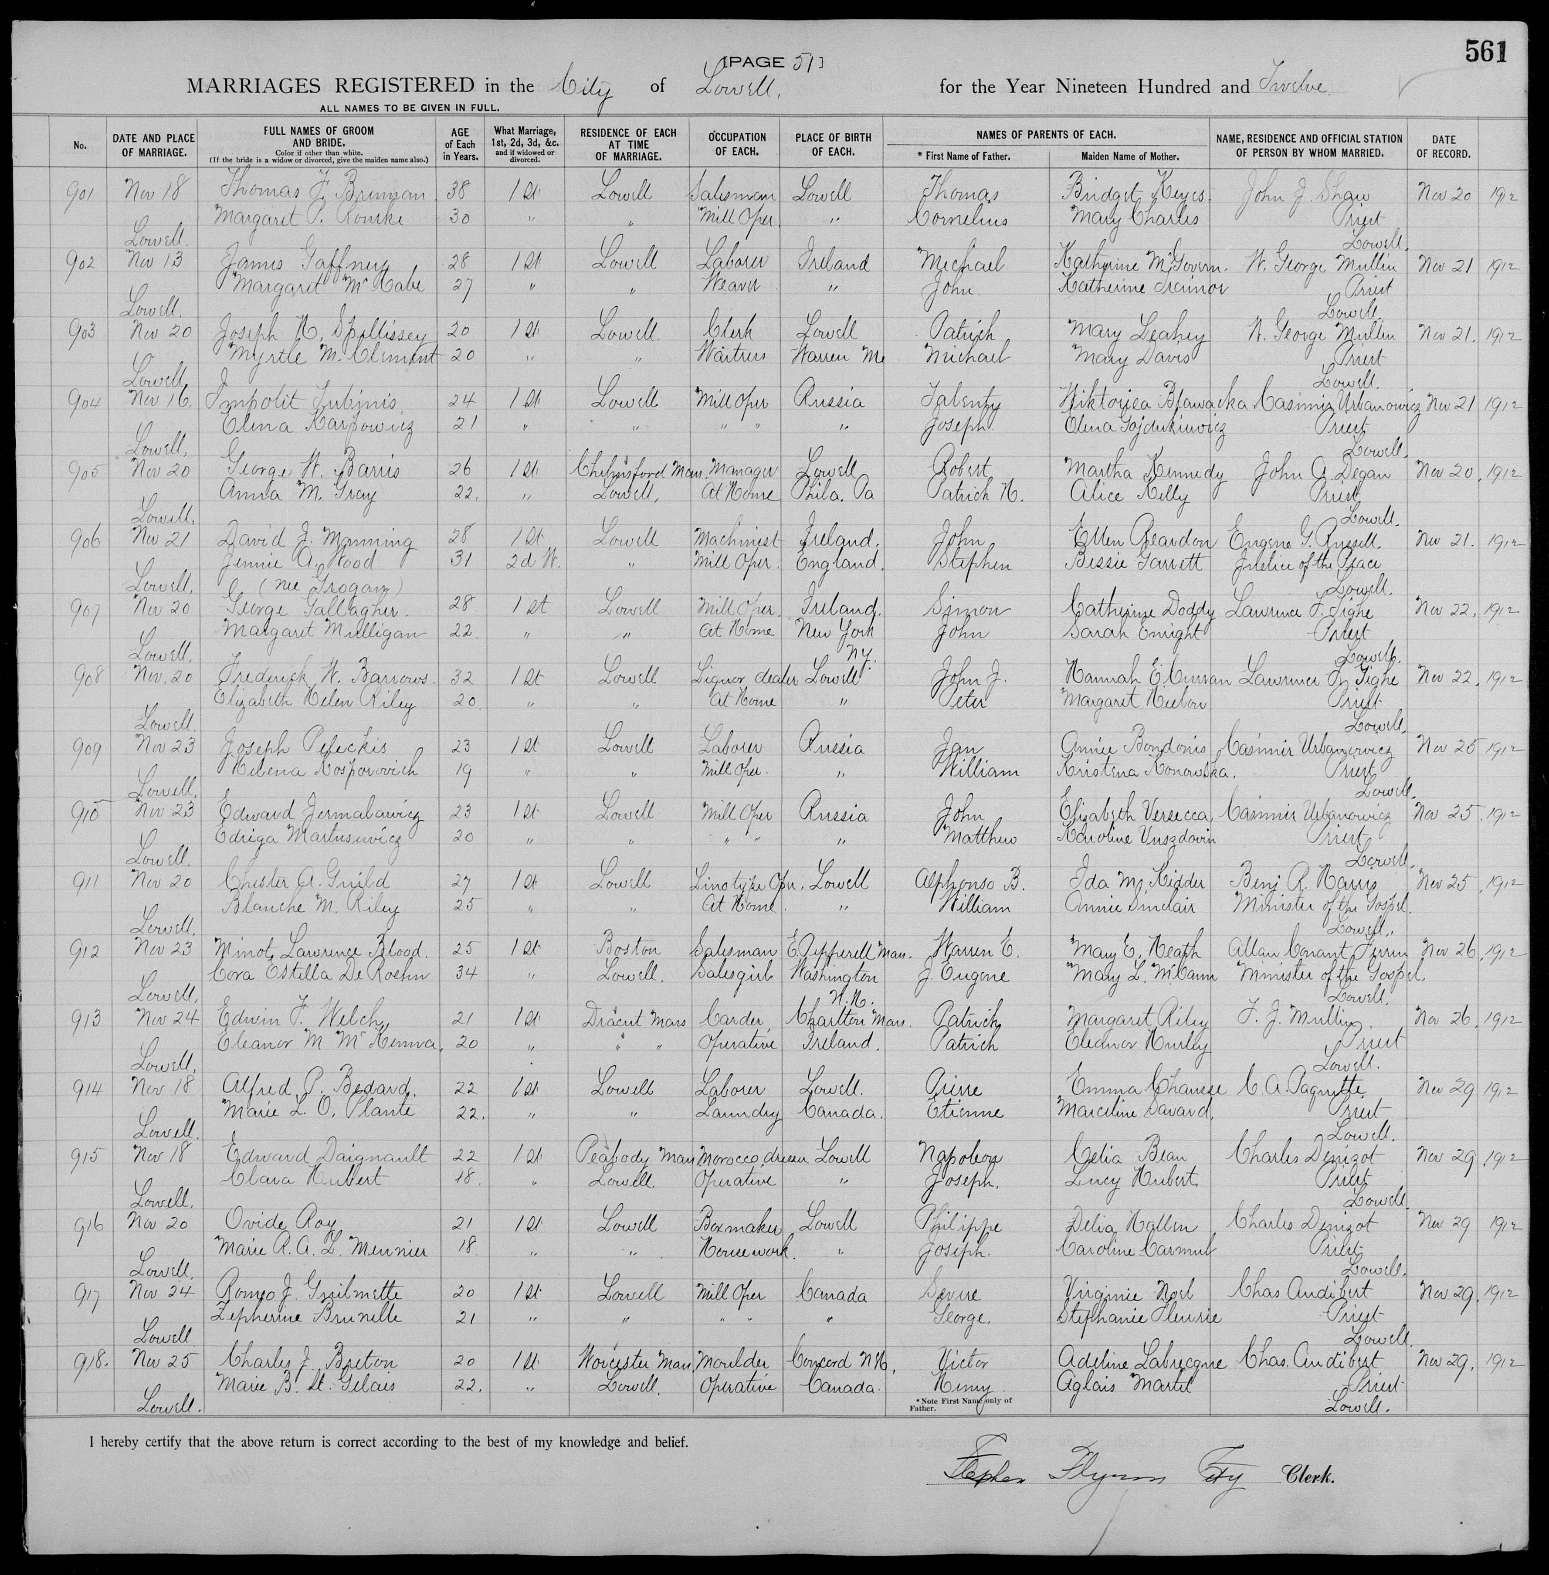 561
[PAGE 51]
MARRIAGES REGISTERED in the City of Lowell, for the Year Nineteen Hundred and Twelve
ALL NAMES TO BE GIVEN IN FULL.
No. DATE AND PLACE OF MARRIAGE. FULL NAMES OF GROOM AND BRIDE. Color if other than white. (If the bride is a widow or divorced, give the maiden name also.) AGE of Each in Years. What Marriage, 1st, 2d, 3d, &c. and if widowed or divorced. RESIDENCE OF EACH AT TIME OF MARRIAGE. OCCUPATION OF EACH. PLACE OF BIRTH OF EACH. NAMES OF PARENTS OF EACH. * First Name of Father. Maiden Name of Mother. NAME, RESIDENCE AND OFFICIAL STATION OF PERSON BY WHOM MARRIED. DATE OF RECORD.
901 Nov 18 Thomas F. Brennan 38 1st Lowell Salesman Lowell Thomas Bridget Keyes John J. Shaw Nov 20 1912
Margaret P. Rourke 30 " " Mill Oper " Cornelius Mary Charles Priest
Lowell Lowell.
902 Nov 13 James Gaffney 28 1st Lowell Laborer Ireland Michael Katherine McGovern W. George Mullin Nov 21 1912
Margaret McCabe 27 " " Weaver " John Katherine Trainor Priest
Lowell. Lowell.
903 Nov 20 Joseph H. Spillissey 20 1st Lowell Clerk Lowell Patrick Mary Leahey W. George Mullin Nov 21. 1912
Myrtle M. Clement 20 " " Waitress Warren Me Michael Mary Davis Priest
Lowell Lowell.
904 Nov 16. 24 1st Lowell Mill Oper Russia Wiktorija Casimir Urbanowicz Nov 21 1912
Elena Karpowicz 21 " " " " " Joseph Elena Gojdukiewicz Priest
Lowell, Lowell.
905 Nov 20 George W. Barris 26 1st Chelmsford Mass. Manager Lowell Robert Martha Kennedy John A. Degan Nov 20, 1912
Anna M. Gray 22. " Lowell, At Home Phila. Pa Patrick H. Alice Kelly Priest
Lowell. Lowell.
906 Nov 21 David J. Manning 28 1st Lowell Machinist Ireland. John Ellen Reardon Eugene G. Russell. Nov 21. 1912
Jennie A. Wood 31 2d W. " Mill Oper. England. Stephen Bessie Garrett Justice of the Peace
Lowell. (nee Grogan) Lowell.
907 Nov 20 George Gallagher. 28 1st Lowell Mill Oper. Ireland. Simon Catherine Doddy Lawrence F. Tighe Nov 22, 1912
Margaret Mulligan 22 " " At Home New York John Sarah Enright Priest
Lowell. N.Y. Lowell.
908 Nov. 20 Frederick W. Barrows. 32 1st Lowell Liquor dealer Lowell John J. Hannah E. Curran Lawrence F. Tighe Nov 22, 1912
Elizabeth Helen Riley 20 " " At Home " Peter Margaret Priest
Lowell. Lowell.
909 Nov 23 Joseph Peleckis 23 1st Lowell Laborer Russia Jan Annie Bondonis Casimir Urbanowicz Nov 25 1912
Helena Kosporovich 19 " " Mill Oper. " William Kristena Konowska. Priest
Lowell. Lowell.
910 Nov 23 Edward Jermalawicz 23 1st Lowell Mill Oper Russia John Elizabeth Versecca Casimir Urbanowicz Nov 25, 1912
Edriga Martusewicz 20 " " " " " Matthew Karoline Priest
Lowell. Lowell.
911 Nov 20 Chester A. Guild 27 1st Lowell Linotype Oper. Lowell Alphonso B. Ida M. Kidder Benj R. Harris Nov 25, 1912
Blanche M. Riley 25 " " At Home. " William Annie Sinclair Minister of the Gospel.
Lowell. Lowell.
912 Nov 23 Minot Lawrence Blood. 25 1st Boston Salesman E Pepperell Mass. Warren E. Mary E. Heath Allan Conant Ferrin Nov 26, 1912
Cora Estella De Roehn 34 " Lowell. Salesgirl Washington J. Eugene Mary L. McCann Minister of the Gospel.
Lowell. N.H. Lowell.
913 Nov 24 Edwin F. Welch 21 1st Dracut Mass Carder Charlton Mass. Patrick Margaret Riley F. J. Mullin Nov 26, 1912
Eleanor M McKenna, 20 " " " Operative Ireland. Patrick Eleanor Hurley Priest
Lowell. Lowell.
914 Nov 18 Alfred P. Bedard. 22 1st Lowell Laborer Lowell. Pierre Emma Chausse C. A. Paquette Nov 29 1912
Marie L. O. Plante 22. " " Laundry Canada. Etienne Marceline Savard. Priest
Lowell. Lowell.
915 Nov 18 Edward Daignault 22 1st Peabody Mass Morocco dresser Lowell Napoleon Celia Bean Charles Denizot Nov 29, 1912
Clara Hubert 18. " Lowell. Operative " Joseph. Lucy Hubert Priest
Lowell. Lowell
916 Nov 20 Ovide Roy 21 1st Lowell Boxmaker Lowell Philippe Delia Hallen Charles Denizot Nov 29 1912
Marie R. A. L. Meunier 18. " " Housework. " Joseph. Caroline Priest
Lowell. Lowell.
917 Nov 24 Romeo J. Guilmette 20 1st Lowell Mill Oper Canada Severe Virginie Noel Chas Audibert Nov 29, 1912
Zepherine Brunelle 21 " " " " " George. Stephanie Fleurie Priest
Lowell Lowell.
918. Nov 25 Charles J. Breton 20 1st Worcester Mass Moulder Concord N.H. Victor Adeline Labrecque Chas. Audibert Nov 29. 1912
Marie B. St. Gelais 22. " Lowell. Operative Canada. Henry Aglais Martel Priest
Lowell. Lowell.
*Note First Name only of Father.
I hereby certify that the above return is correct according to the best of my knowledge and belief.
Stephen Flynn City Clerk.